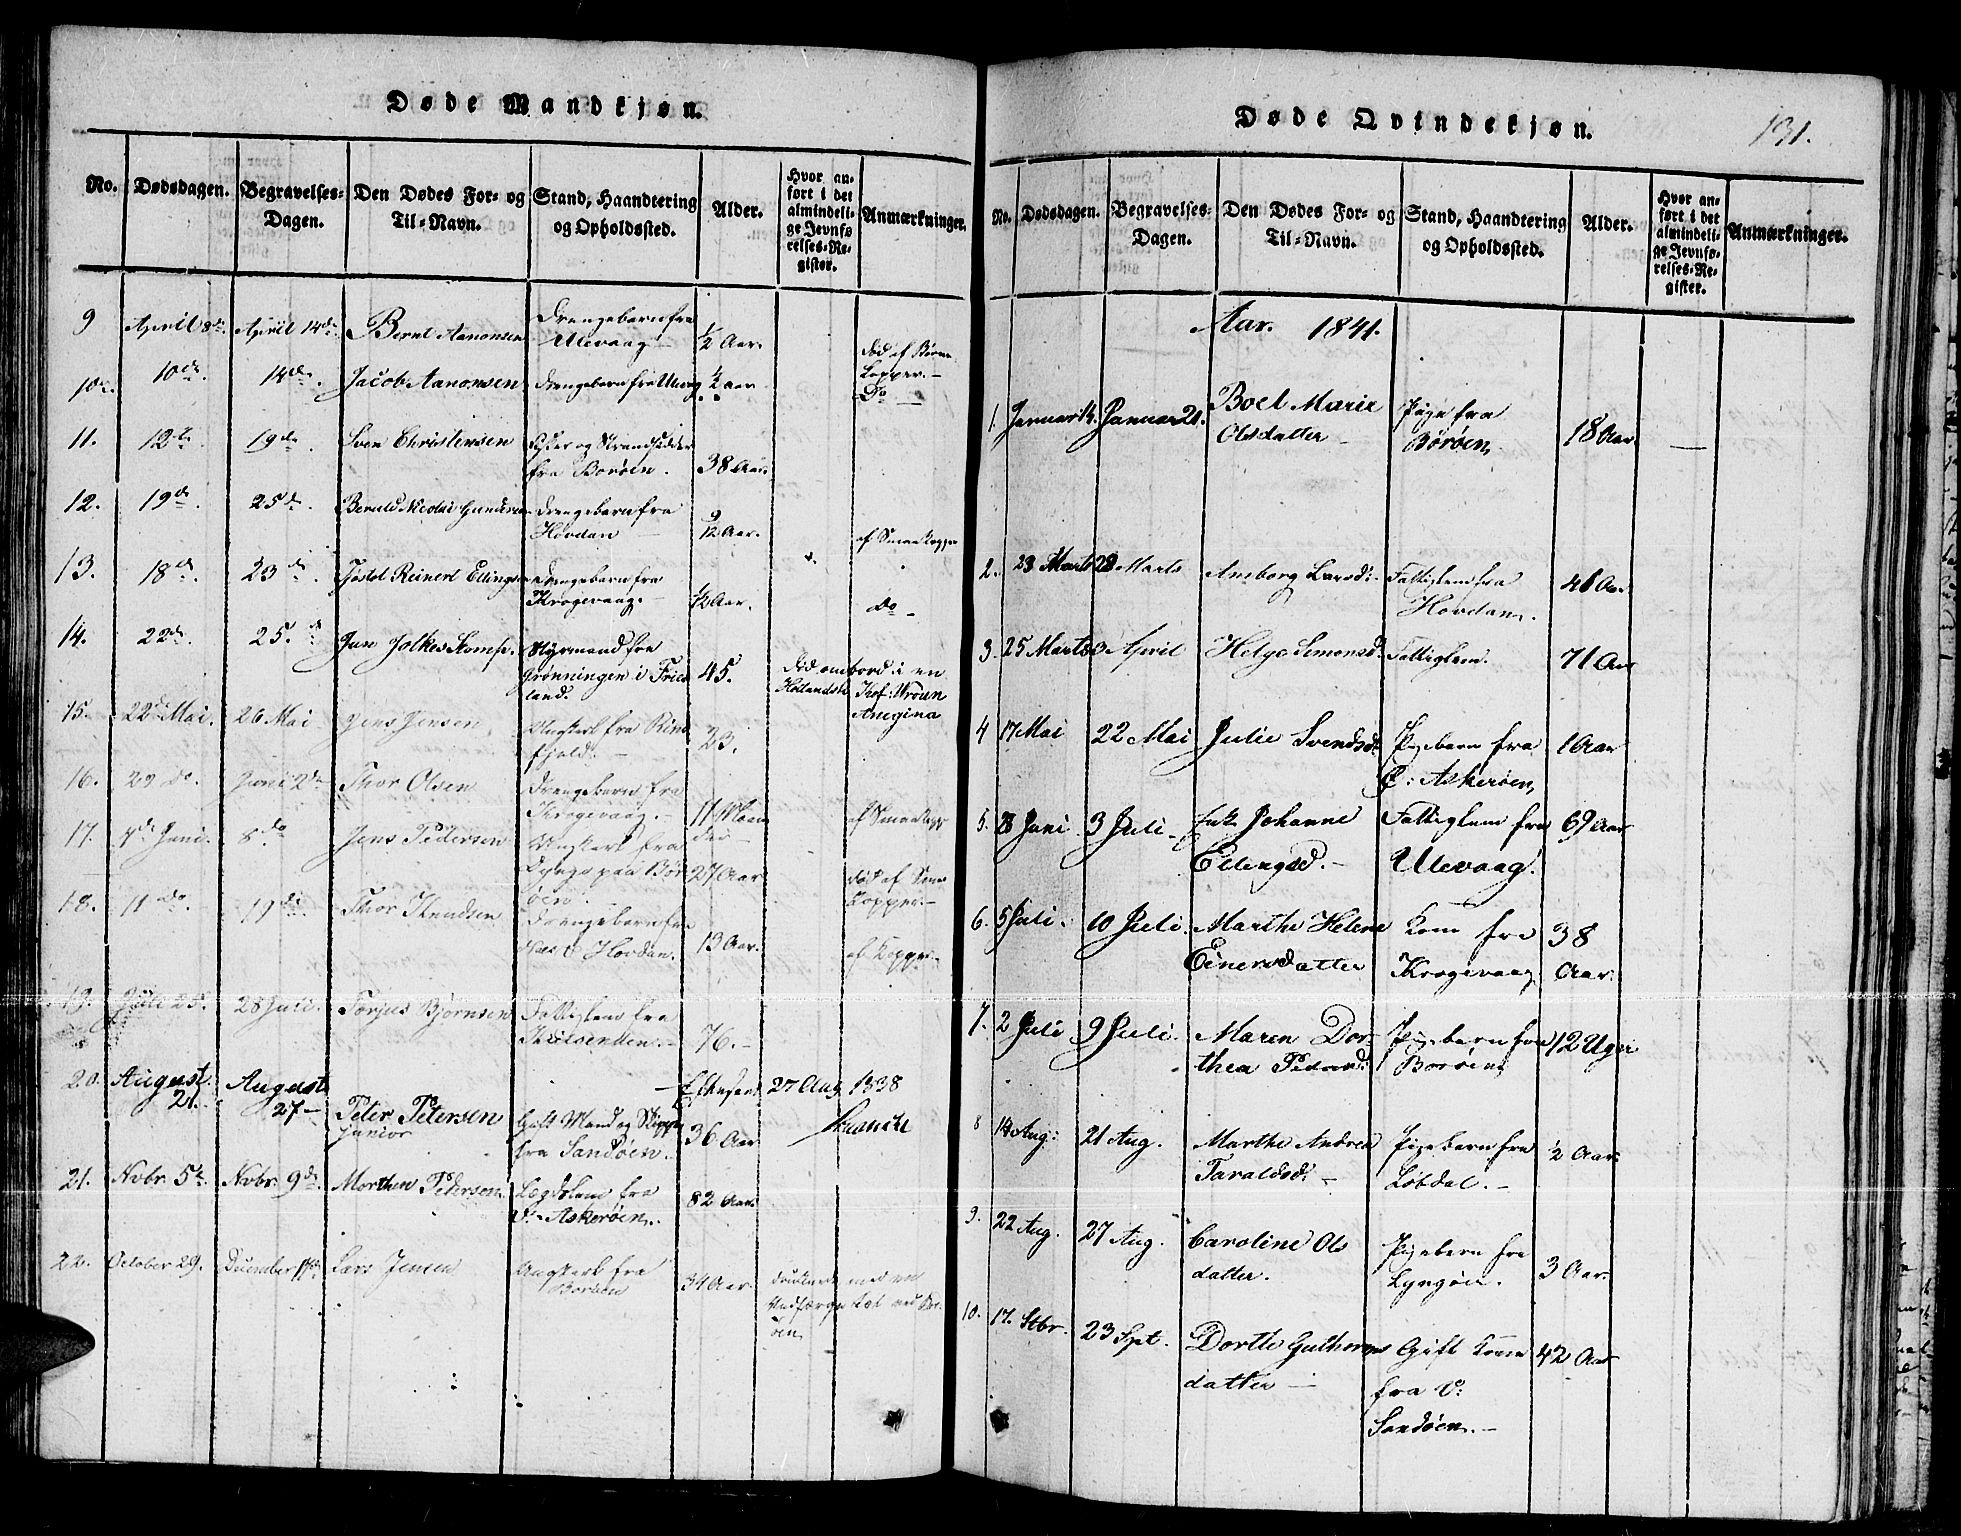 Døde Mandkjøn.
No. Dødsdagen. Begravelses-Dagen. Den Dødes For- og Til-Navn. Stand, Haandtering og Opholdssted. Alder. Hvor anført i det almindelige Jevnførelses-Register. Anmærkninger.
9 April 8de. April 14de Bernt Aanonsen Drengebarn fra Ulevaag ½ Aar. død af Børnekopper.
10. 10de. 14de. Jacob Aanonsen Drengebarn fra Ulevag ½ Aar Do
11. 12te 19de Sven Christensen og Strandsidder fra Borøen. 38 Aar.
12. 19de. 25de. Nicolai Gundersen Drengebarn fra Hovdan 9/12 Aar. af Smaakopper
13. 18de. 23de. Reinert Ellingsen Drengebarn fra Krogevaag. ½ Aar. Do
14. 22de. 25.de Jan Jolkes Styrmand fra Grønningen i Friesland. 45. Død ombord i en Hollandsk Kof: Vrouw Anegina
15. 22de Mai. 26 Mai Jens Jensen Ungkarl fra 23.
16. 29 do. Juni 2de Thor Olsen Drengebarn fra Krogevaag. 11 Maaneder af Smaakopp
17. 4de Juni. 8do Jens Pedersen Ungkarl fra Dybge paa Borøen. 27 Aar død af Smaakopper.
18. 11do. 19de Thor Knudsen Drengebarn fra Hovdan. 13 Aar. af Kopper
19. Juli 25. 28 Juli. Torjus Bjørnsen Fattiglem fra 76.
Efterseet 27 Aug. 1838
20. August 21. August 27 Peter Petersen junior Gift Mand og Skipper fra Sandøen. 36 Aar
21. Novbr. 5te. Novbr. 9de. Morthen Pedersen. Lægdslem fra V. Askerøen. 82 Aar
22. October 29. December Lars Jensen Ungkarl fra Borøen 34 Aar druknede med en
Døde Qvindekjøn.
131.
No. Dødsdagen. Begravelses-Dagen. Den Dødes For- og Til-Navn. Stand, Haandtering og Opholdssted. Alder. Hvor anført i det almindelige Jevnførelses-Register. Anmærkninger.
Aar. 1841.
1. Januar 14. Januar 21. Boel Marie Olsdatter Pige fra Borøen. 18 Aar
2. 23 Marts 28 Marts Anborg Larsd: Fattiglem fra Hovdan. 48 Aar
3. 25 Marts 3 April Helge Simonsd. Fattiglem. 71 Aar
4 17 Mai 22 Mai Julie Svendsd: Pigebarn fra Ø: Askerøen, 1 Aar
5. 28 Juni 3 Juli Enk. Johanne Ellengsd. Fattiglem fra Ulevaag. 69 Aar
6. 5 Juli. 10 Juli. Marthe Helene Einersdatter Kone fra Krogevaag 38 Aar.
7. 2 Juli 9 Juli. Maren Dorthea Pedersd: Pigebarn fra Borøen 12 Uger
8 14 Aug: 21 Aug. Marthe Andrea Taraldsd: Pigebarn fra Løbdal. ½ Aar
9. 22 Aug. 27 Aug. Caroline Olsdatter. Pigebarn fra Lyngøen. 3 Aar.
10. 17. Stbr. 23 Spt. Dorthe Guthormsdatter Gift Kone fra V: Sandøen. 42 Aar